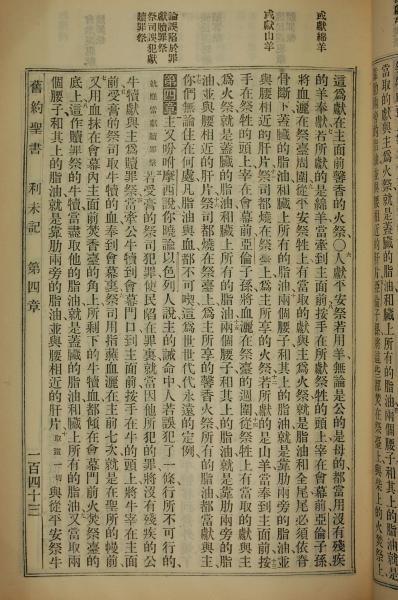 或獻綿羊
或獻山羊
論誤陷於罪
獻贖罪祭
祭司誤犯獻
贖罪祭
這爲獻在主面前馨香的火祭〇人獻平安祭若用羊無論是公的是母的都當用沒有殘疾
的羊奉獻若所獻的是綿羊當牽到主面前按手在所獻祭牲的頭上宰在會幕前亞倫子孫
將血灑在祭臺周圍從平安祭牲上有當取的獻與主爲火祭就是脂油和全尾尾必須依脊
骨斷下蓋臟的脂油和臟上所有的脂油兩個腰子和其上的脂油就是靠肋兩旁的脂油並
與腰相近的肝片祭司都燒在祭臺上爲主所享的火祭若所獻的是山羊當奉到主面前按
手在祭牲的頭上宰在會幕前亞倫子孫將血灑在祭臺的週圍從祭牲上有當取的獻與主
爲火祭就是蓋臟的脂油和臟上所有的脂油兩個腰子和其上的脂油就是靠肋兩旁的脂
油並與腰相近的肝片祭司都燒在祭臺上爲主所享的馨香火祭所有的脂油都當獻與主
你們無論住在何處凡脂油與血都不可喫這爲世世代代永遠的定例
第四章主又吩咐摩西說你曉諭以色列人說主的誡命中人若誤犯了一條行所不可行的
就應當獻贖罪祭若受膏的祭司犯罪使民陷在罪裏就當因他所犯的罪將沒有殘疾的公
牛犢獻與主爲贖罪祭當牽公牛犢到會幕門口到主面前按手在牛的頭上將牛宰在主面
前受膏的祭司取牛犢的血進到會幕裏祭司用指蘸血灑在主面前七次就是在聖所的幔前
又用血抹在會幕內主面前焚香臺的角上所剩下的牛犢血都傾在會幕門前火焚祭臺的
底上這作贖罪祭的牛犢當盡取他的脂油就是蓋臟的脂油和臟上所有的脂油又當取兩
個腰子和其上的脂油就是靠肋兩旁的脂油並與腰相近的肝片取這一切與從平安祭牛
舊約聖書 利未記 第四章 一百四十三